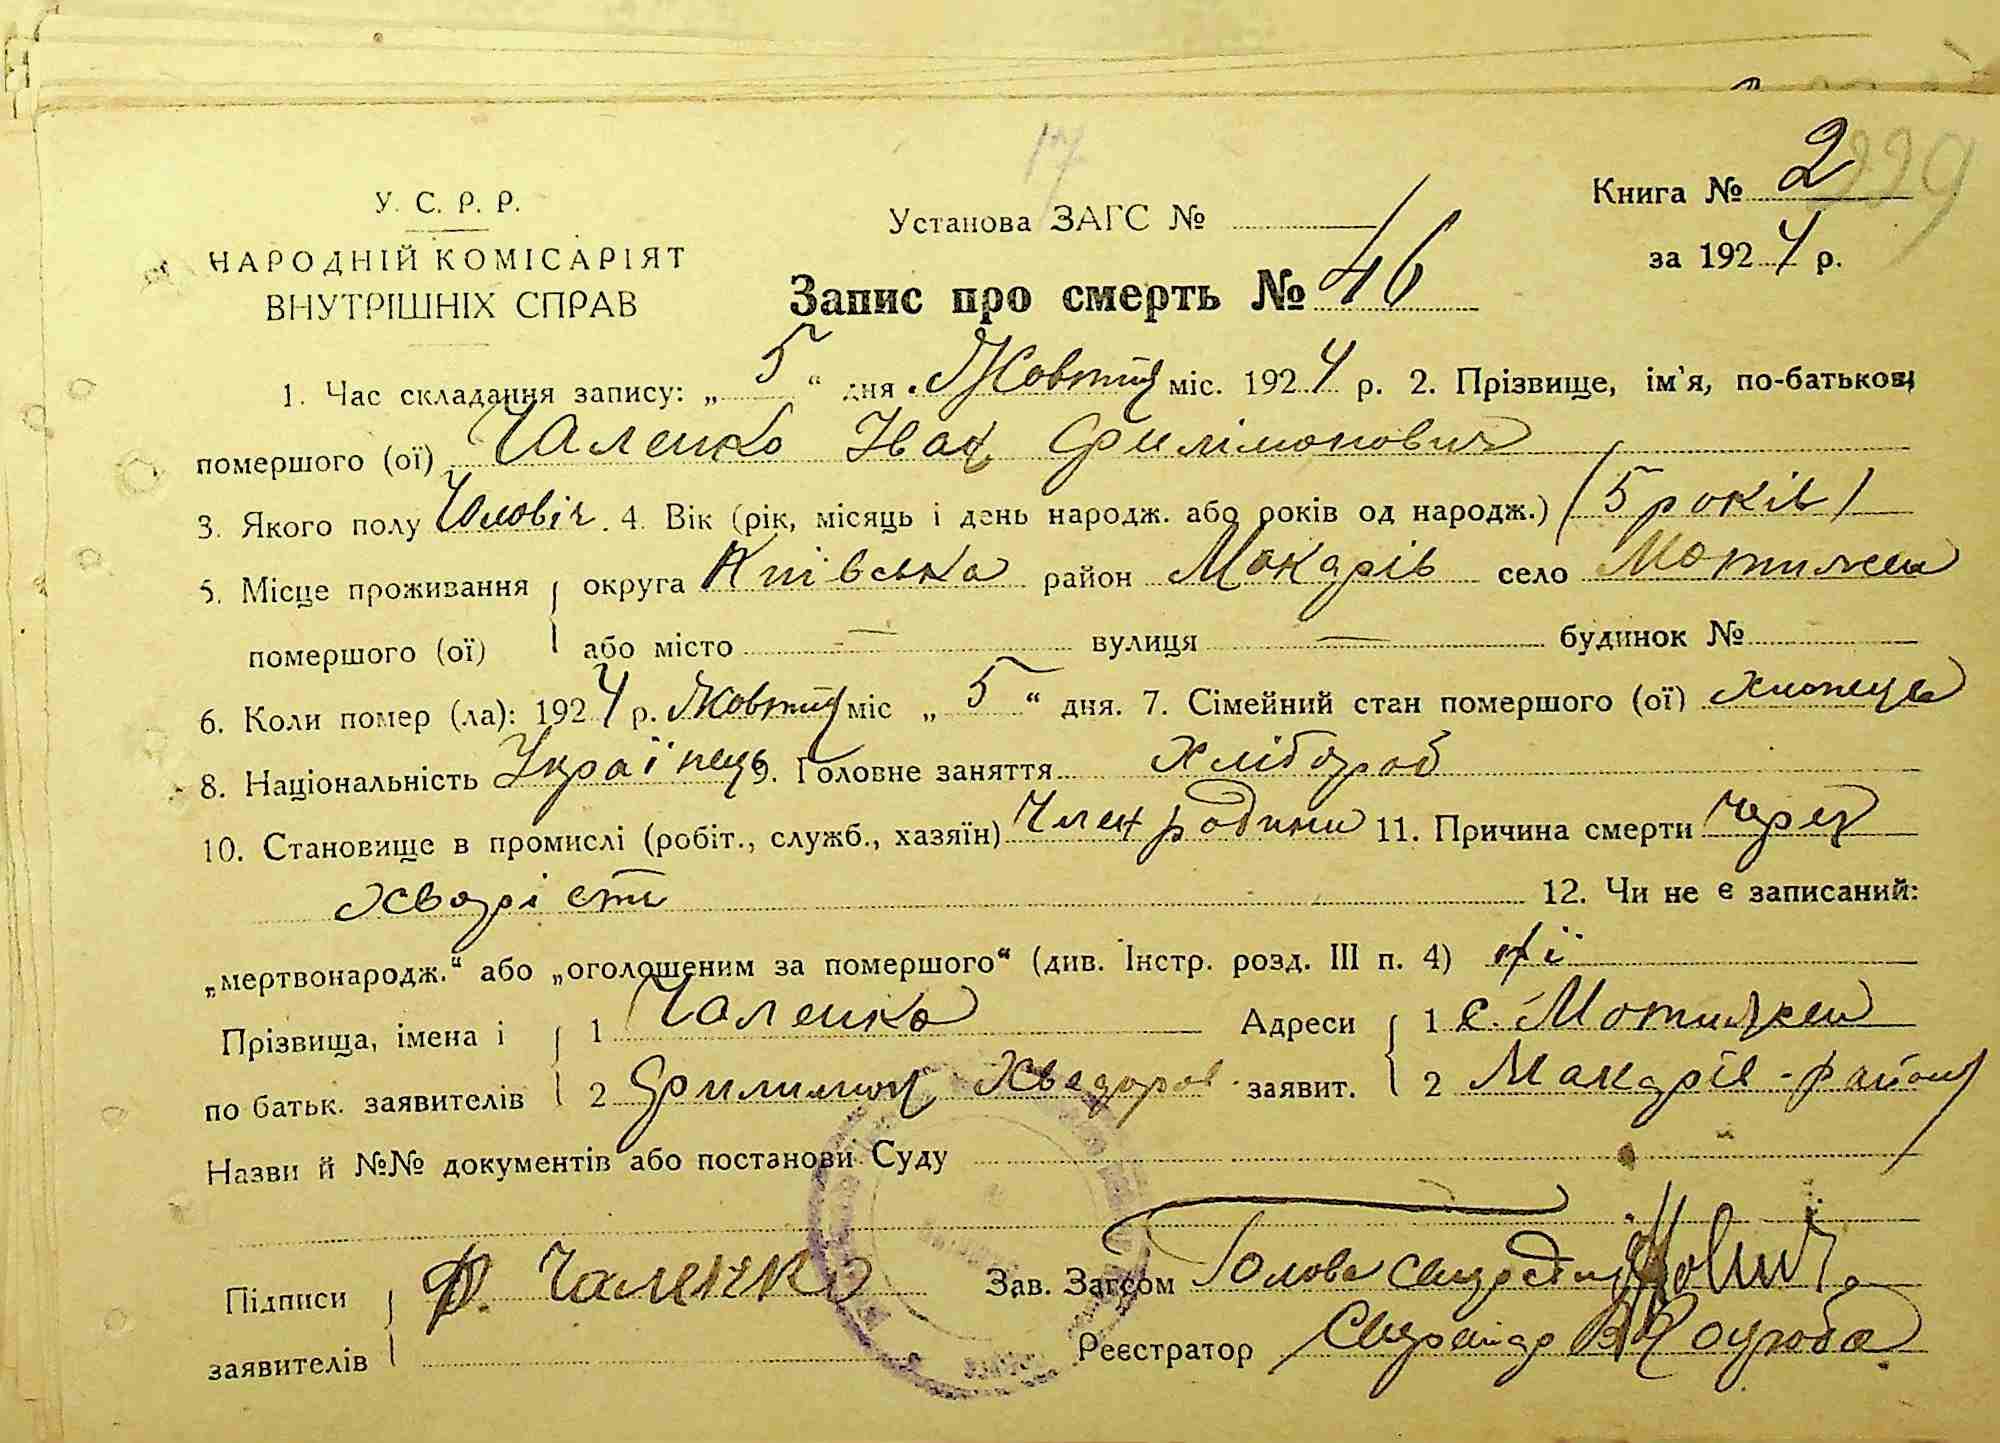 17
Книга № 2 229
У. С. Р. Р.
Установа ЗАГС №
за 1924 р.
НАРОДНІЙ КОМІСАРІЯТ
ВНУТРІШНІХ СПРАВ
Запис про смерть № 46
1. Час складання запису: „ 5 “ дня Жовтня міс. 1924 р. 2. Прізвище, ім'я, по-батькові
помершого (ої) Чаленко Іван Филімонович
3. Якого полу Чоловіч. 4. Вік (рік, місяць і день народж. або років од народж.) (5 років)
5. Місце проживання округа Київська район Макарів село Мотижен
помершого (ої) або місто — вулиця — будинок №
6. Коли помер (ла): 1924 р. Жовтня міс „ 5 “ дня. 7. Сімейний стан помершого (ої) хлопець
8. Національність Українець 9. Головне заняття Хлібороб
10. Становище в промислі (робіт., служб., хазяїн) Член родини 11. Причина смерти через
хворість 12. Чи не є записаний:
„мертвонародж.“ або „оголошеним за помершого“ (див. Інстр. розд. III п. 4) ні
Прізвища, імена і 1 Чаленко Адреси 1 с. Мотижен
по батьк. заявителів 2 Филимон Хведоров заявит. 2 Макарів-району
Назви й №№ документів або постанови Суду
Підписи Ф. Чаленко Зав. Загсом Голова сільради
заявителів Реєстратор Секретар